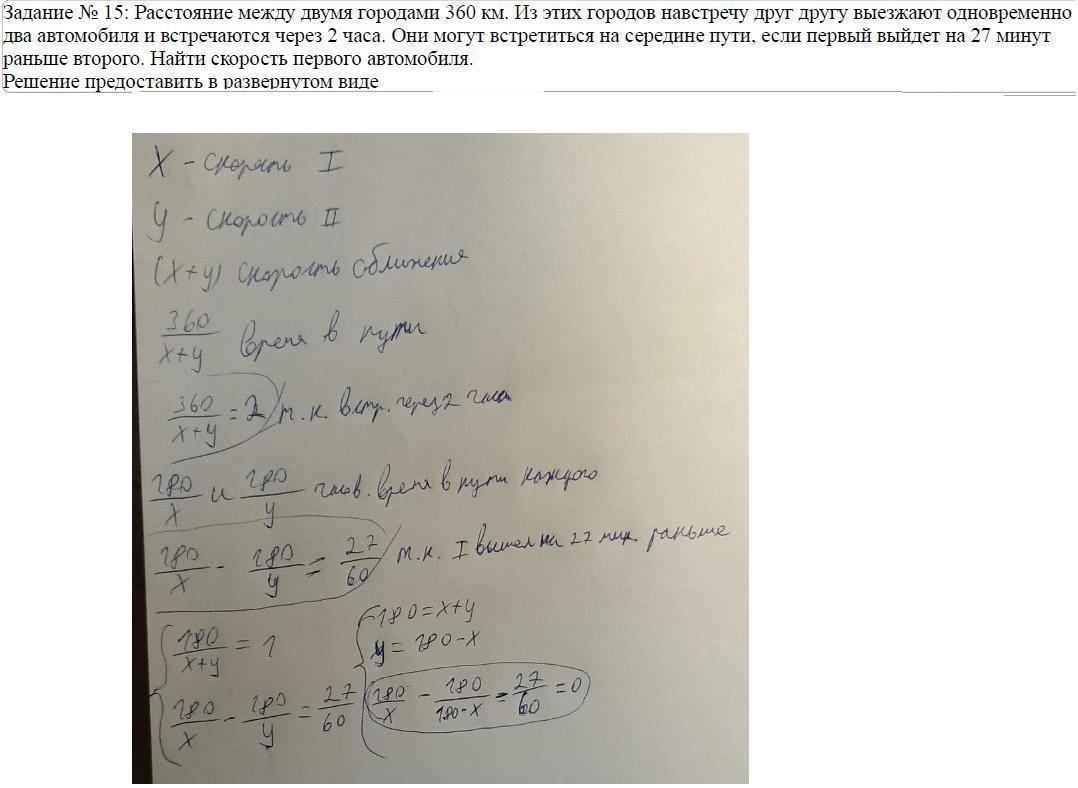 Задание № 15: Расстояние между двумя городами 360 км. Из этих городов навстречу друг другу выезжают одновременно
два автомобиля и встречаются через 2 часа. Они могут встретиться на середине пути, если первый выйдет на 27 минут
раньше второго. Найти скорость первого автомобиля.
Решение предоставить в развернутом виде
X - скорость I
y - скорость II
(x+y) скорость сближения
360/(x+y) время в пути
360/(x+y) = 2 т.к. встр. через 2 часа
180/x и 180/y часов. время в пути каждого
180/x - 180/y = 27/60 т.к. I вышел на 27 мин. раньше
180/(x+y) = 1
180/x - 180/y = 27/60
180 = x+y
y = 180-x
180/x - 180/(180-x) - 27/60 = 0